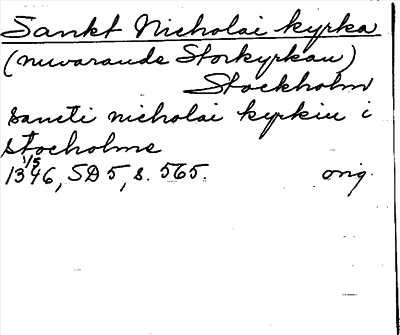 Sankt Nicholai kyrka
(nuvarande Storkyrkan)
Stockholm
sancti nicholai kyrkiu i
stocholme
1/5
1346, SD 5, s. 565. orig.